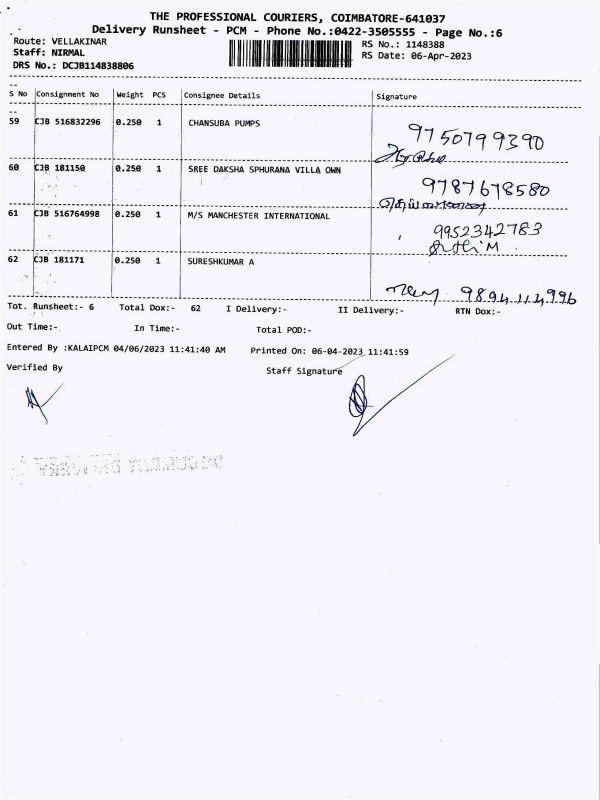 THE PROFESSIONAL COURIERS, COIMBATORE-641037
Delivery Runsheet - PCM - Phone No.:0422-3505555 - Page No.:6
Route: VELLAKINAR
RS No.: 1148388
Staff: NIRMAL
RS Date: 06-Apr-2023
DRS No.: DCJB114838806
S No Consignment No Weight PCS Consignee Details Signature
59 CJB 516832296 0.250 1 CHANSUBA PUMPS
9750799390
60 CJB 181150 0.250 1 SREE DAKSHA SPHURANA VILLA OWN
9787678580
61 CJB 516764998 0.250 1 M/S MANCHESTER INTERNATIONAL
9952342783
62 CJB 181171 0.250 1 SURESHKUMAR A
9894114996
Tot. Runsheet:- 6 Total Dox:- 62 I Delivery:- II Delivery:- RTN Dox:-
Out Time:- In Time:- Total POD:-
Entered By :KALAIPCM 04/06/2023 11:41:40 AM Printed On: 06-04-2023 11:41:59
Verified By Staff Signature